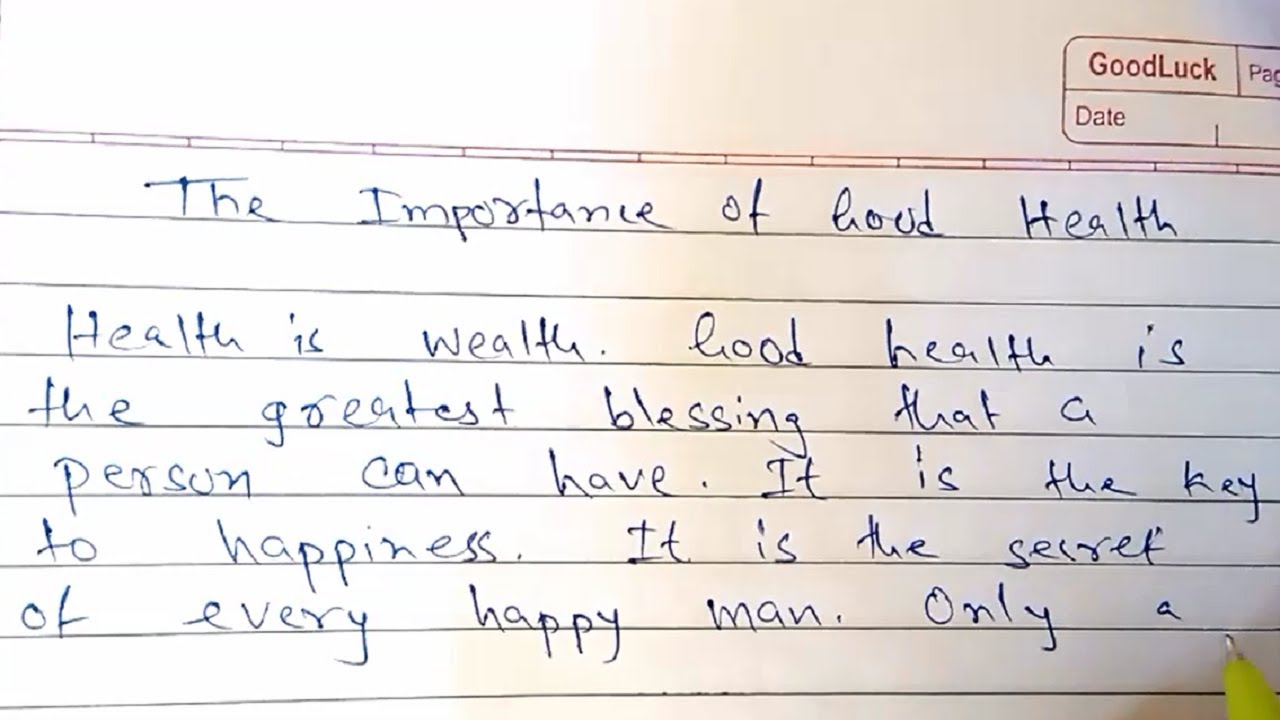 GoodLuck
Pag
Date
The Importance of Good Health
Health is wealth. Good health is
the greatest blessing that a
person can have. It is the key
to happiness. It is the secret
of every happy man. Only a